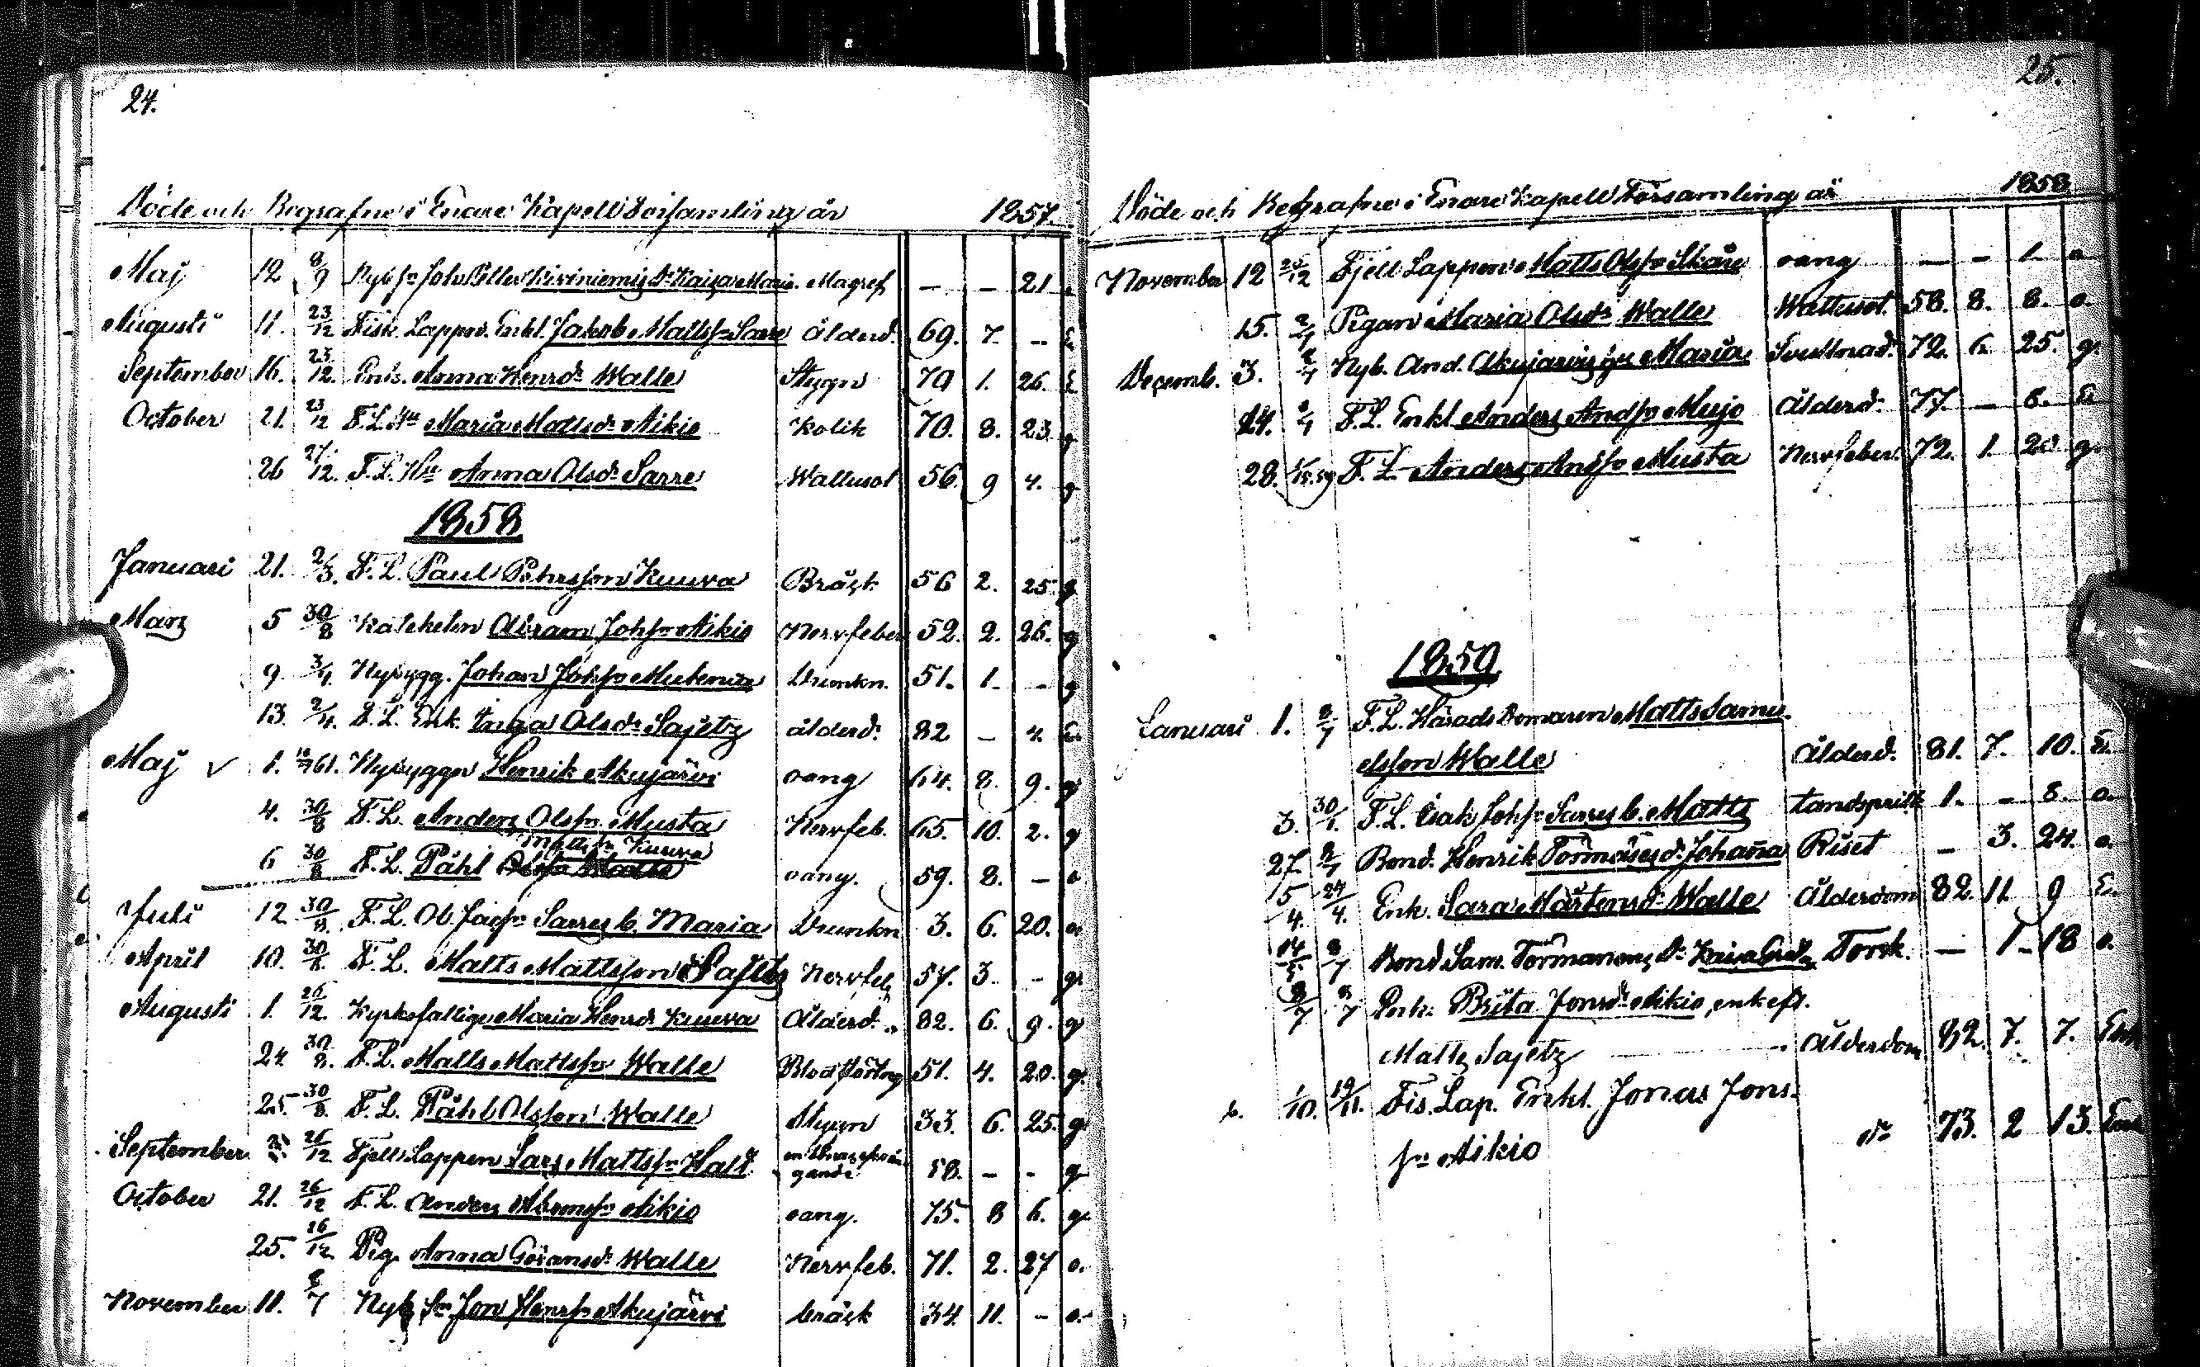 24.
Döde och Begrafne i Enare Kapell Församling år 1857.
Maj 12 8/9 Nybs Joh. Kiviniemis dr Kaisa Maria Magref — — 21.
Augusti 11. 23/12 Fisk. Lappen. Enkl. Jakob Mattsfn Sarre Ålderd. 69. 7. — E
September 16. 23/12. Enk. Anna Henrsdr Walle Stygn 79 1. 26. E
October 21. 23/12 F. L. Hu Maria Mattsdr Aikio Kolik 70. 8. 23. g
26 27/12. F. L. Hu Anna Olsdr Sarre Wattusot 56. 9 4. g
1858
Januari 21. 2/3. F. L. Paul Pehrsson Kuuva Bråst. 56 2. 25. g
Mars 5 30/8 Kateketen Abram Johsfn Aikio Nervfeber 52. 2. 26. g
9. 3/4. Nybygg. Johan Johsfn Mutenia Drunkn. 51. 1. — g
13. 2/4. F. L. Enk. Inga Olsdr Sajetz ålderd. 82 — 4. E.
Maj √ 1. 61. Nybyggn Henrik Akujärvi oang 64. 8. 9. g
4. 30/8 F. L. Anders Olsfn Musta Nervfeb. 65. 10. 2. g
Mattsfn Kuuva
6 30/8 F. L. Påhl oang. 59. 8. — o
Juli 12 30/8. F. L. Ol. Jacsfn Sarres b. Maria Drunkn 3. 6. 20. o
April 10. 30/8. F. L. Matts Mattsson Sajetz Nervfeb 57. 3. — g
Augusti 1. 26/12. Kyrkofattige Maria Henrsdr Kuuva Ålderd. 82. 6. 9. g
24 30/8. F. L. Matts Mattsfn Walle Blodstörtng 51. 4. 20. g.
25 30/8. F. L. Påhl Olsson Walle Stygn 33. 6. 25. g
September 26/12 Fjell Lappen Lars Mattsfn Halt 58. — — g
October 21. 26/12 F. L. Anders Abrmsfn Aikio oang. 75. 8 6. g.
25. 26/12. Pig. Anna Göransdr Walle Nervfeb. 71. 2. 27 o.
November 11. 2/1 Nyb. Sn Jon Henrsfn Akujärvi bråck 34. 11. — o.
25.
Döde och Begrafne i Enare Kapell Församling år 1858
November 12 26/12 Fjell Lappen Matts Olsfn Skåre oang — — 1. o
15. 2/1 Pigan Maria Olsdr Walle Wattusot. 58. 8. 8. o.
Decemb. 3. 2/1 Nyb. And. Akujärvis Maria 72. 6. 25. g.
24. 2/1 F. L. Enkl Anders Andsfn Mujo Ålderd. 77. — 8. E
28. F. L. Anders Andsfn Musta Nervfeber. 72. 1 20. g.
1859
Januari 1. 2/1 F. L. Härads Domaren Matts Samu-
elsson Walle Ålderd. 81. 7. 10. E.
3. 30/1. F. L. Isak Johsfn Sarres b. Matts tandsprick 1. — 8. o.
27. 2/1 Bond. Henrik Törmäses dr Johaña Riset — 3. 24. o.
5/4. 24/4. Enk. Sara Mårtensdr Walle Ålderdom 82. 11. 9 E.
14/5 3/7 Bond Sam. Törmänens dr Kaisa Greta Torsk. — 1. 18 o.
3/7 3/7 Enk. Brita Jonsdr Aikio, enk eft.
Matts Sajetz — Ålderdom 82. 7. 7. Enk
1/10. 19/11. Fis. Lap. Enkl. Jonas Jons-
fn Aikio do 73. 2 13. Enk